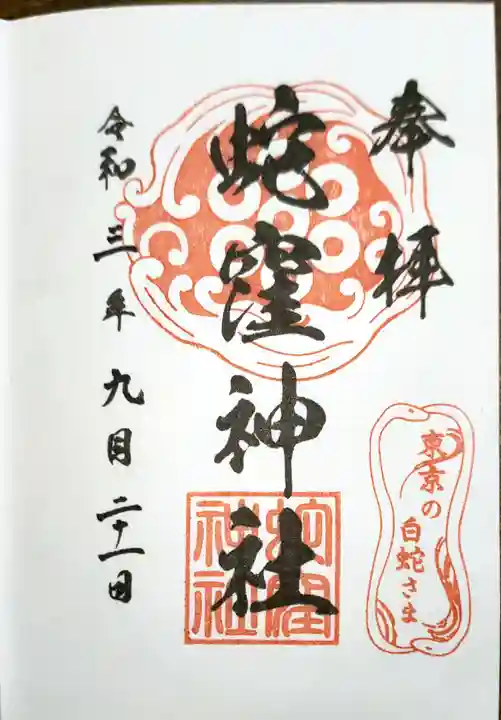 奉拝
蛇窪神社
令和三年九月二十一日
東京の
白蛇さま
蛇窪
神社